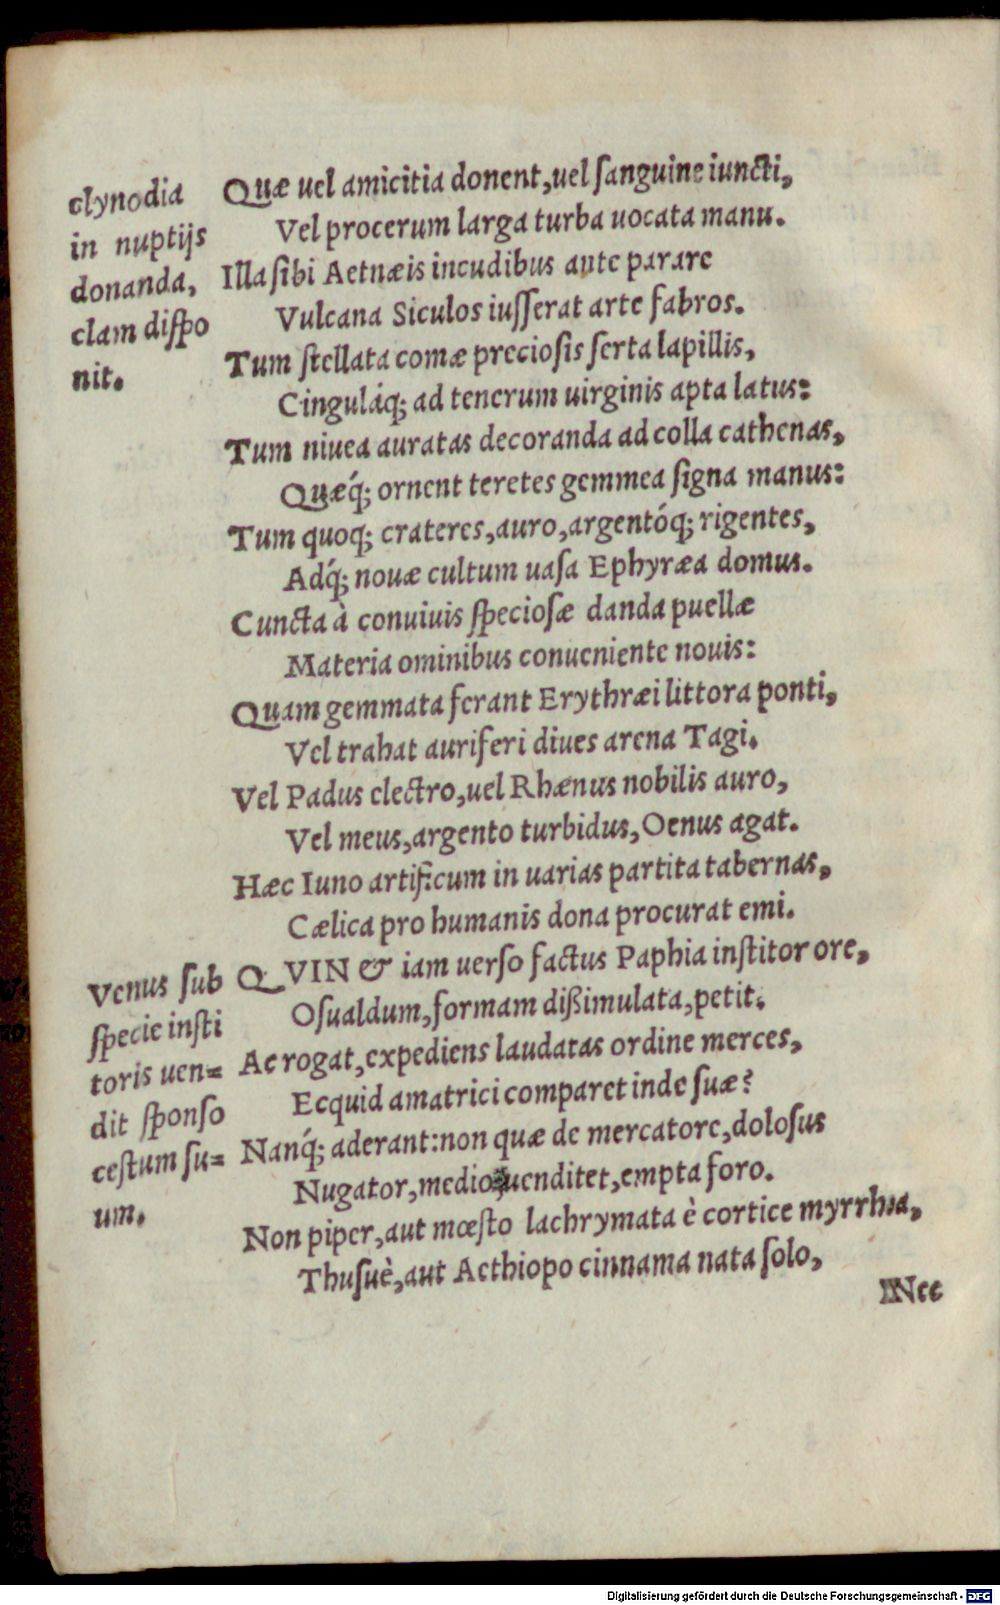 clynodia
in nuptijs
donanda,
clam diſpo
nit.
Quæ uel amicitia donent, uel ſanguine iuncti,
Vel procerum larga turba uocata manu.
Illa ſibi Aetnæis incudibus ante parare
Vulcana Siculos iuſſerat arte fabros.
Tum ſtellata comæ preciosis ſerta lapillis,
Cinguláq; ad tenerum uirginis apta latus:
Tum niuea auratas decoranda ad colla cathenas,
Quæq́; ornent teretes gemmea ſigna manus:
Tum quoq; crateres, auro, argentóq; rigentes,
Adq́; nouæ cultum uaſa Ephyræa domus.
Cuncta à conuiuis ſpecioſæ danda puellæ
Materia ominibus conueniente nouis:
Quam gemmata ferant Erythræi littora ponti,
Vel trahat auriferi diues arena Tagi.
Vel Padus electro, uel Rhænus nobilis auro,
Vel meus, argento turbidus, Oenus agat.
Hæc Iuno artificum in uarias partita tabernas,
Cælica pro humanis dona procurat emi.
Venus ſub
ſpecie inſti
toris uen=
dit ſponſo
ceſtum ſu=
um.
QVIN & iam uerſo factus Paphia inſtitor ore,
Oſualdum, formam dißimulata, petit.
Ac rogat, expediens laudatas ordine merces,
Ecquid amatrici comparet inde ſuæ?
Nanq́; aderant: non quæ de mercatore, doloſus
Nugator, medio, uenditet, empta foro.
Non piper, aut mœſto lachrymata è cortice myrrha,
Thuſuè, aut Aethiopo cinnama nata ſolo,
Nec
Digitalisierung gefördert durch die Deutsche Forschungsgemeinschaft - DFG